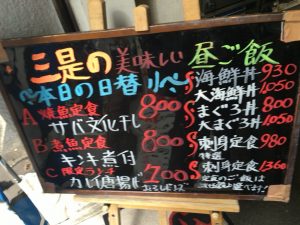 三是の美味しい 昼ご飯
本日の日替り
A 焼魚定食 800
サバ文化干し
B 煮魚定食 800
キンキ煮付
C 限定ランチ 700
カレイ唐揚げ
おろしポン酢
海鮮丼 930
大海鮮丼 1050
まぐろ丼 800
大まぐろ丼 1050
刺身定食 980
特選
刺身定食 1360
定食のご飯は